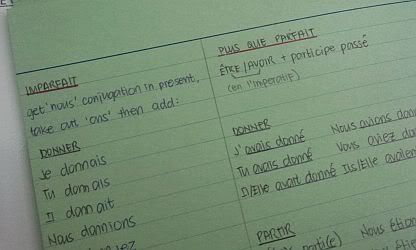 IMPARFAIT
get 'nous' conjugation in present,
take out 'ons' then add:
DONNER
Je donnais
Tu donnais
Il donnait
Nous donnions
PLUS QUE PARFAIT
ÊTRE/AVOIR + participe passé
(en l'imperatif)
DONNER
J'avais donné Nous avions
Tu avais donné Vous aviez
Il/Elle avait donné Ils/Elle
PARTIR
Nous